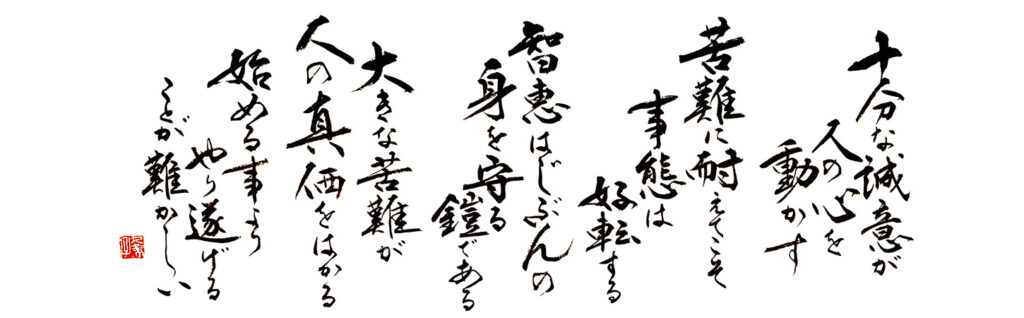 十分な誠意が
人の心を
動かす
苦難に耐えてこそ
事態は
好転する
智恵はじぶんの
身を守る
鎧である
大きな苦難が
人の真価をはかる
始める事より
やり遂げる
ことが難かしい